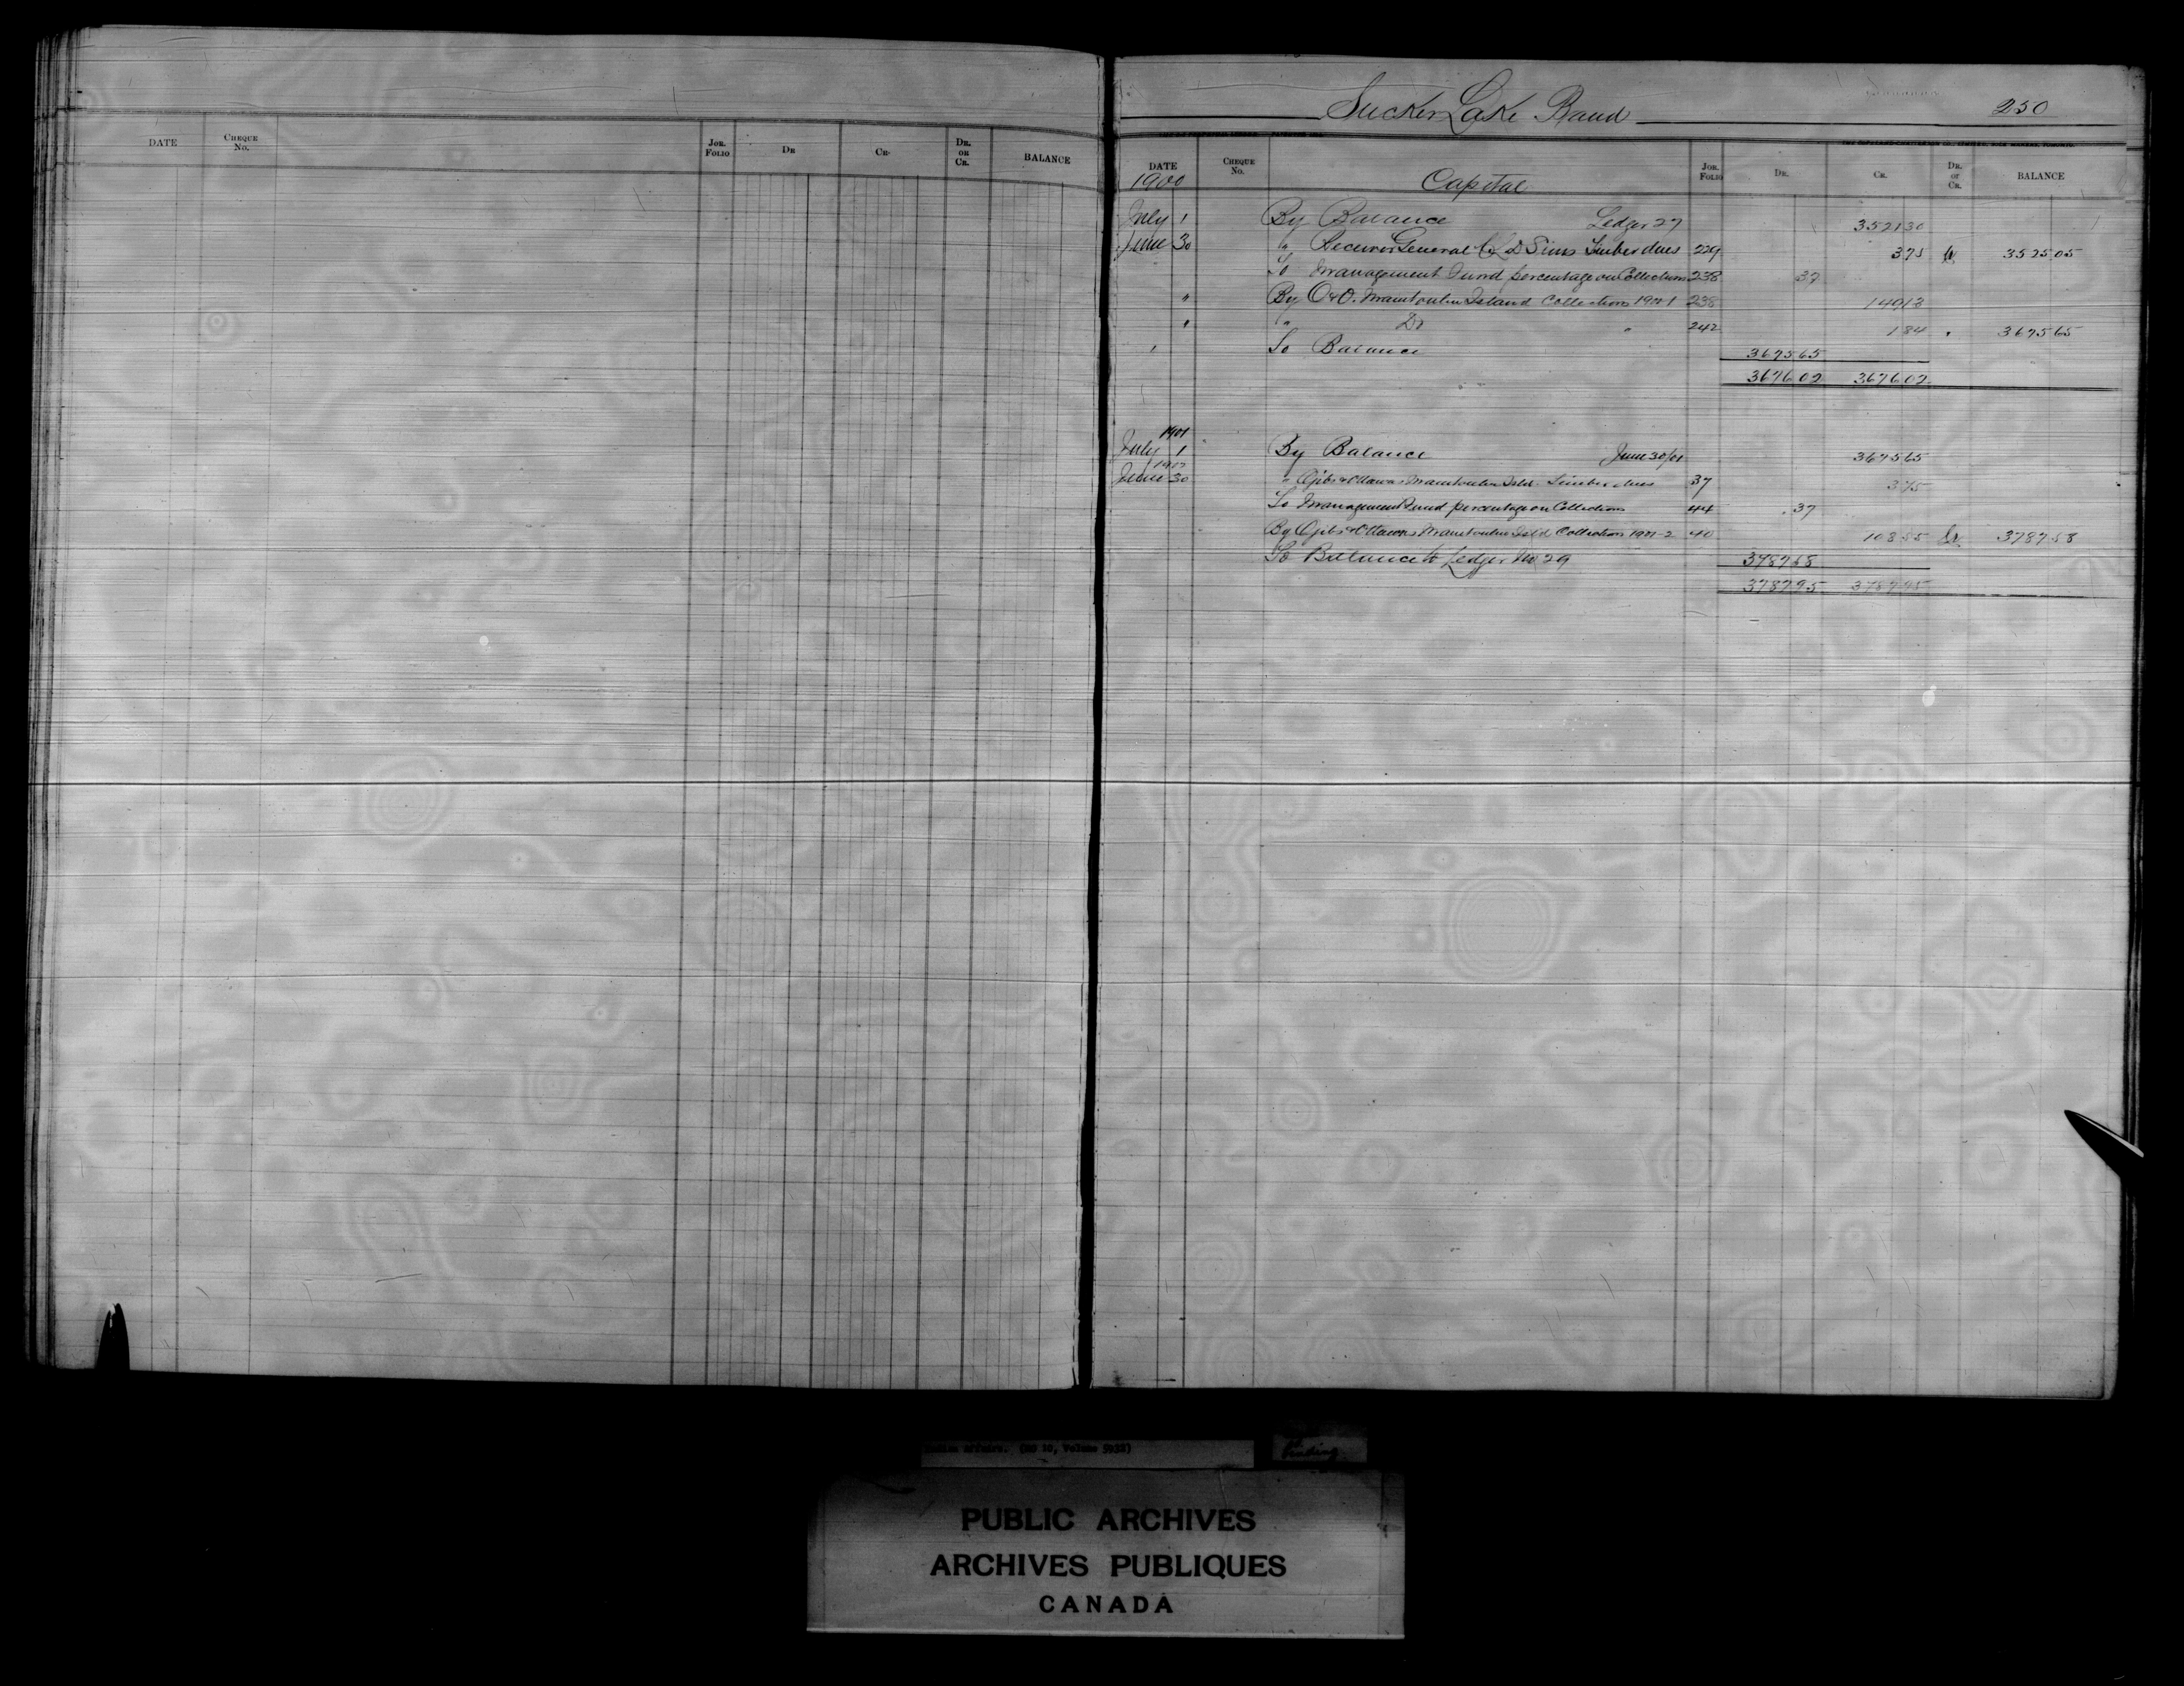 DATE CHEQUE No. JOR. FOLIO DR CR. DR. OR CR. BALANCE
Sucker Lake Band 250
DATE CHEQUE No. JOR. FOLIO DR. CR. DR. or CR. BALANCE
1900 Capital
July 1 By Balance Ledger 27 3521 30
June 30 " Receiver General C L D Sims Timber dues 229 3 75 Cr 3525 05
To Management Fund percentage on Collections 238 37
" By O & O. Manitoulin Island Collections 1900-1 238 149 13
" " Do " 242 1 84 " 3675 65
" To Balance 3675 65
3676 02 3676 02
1901
July 1 By Balance June 30/01 3675 65
1902
June 30 " Ojibs & Ottawas Manitoulin Isld. Timber dues 37 3 75
To Management Fund percentage on Collections 44 37
By Ojibs & Ottawas Manitoulin Isld Collections 1901-2 40 108 55 Cr 3787 58
To Balance to Ledger No 29 3787 58
3787 95 3787 95
Indian Affairs. (RG 10, Volume 5932)
binding
PUBLIC ARCHIVES
ARCHIVES PUBLIQUES
CANADA